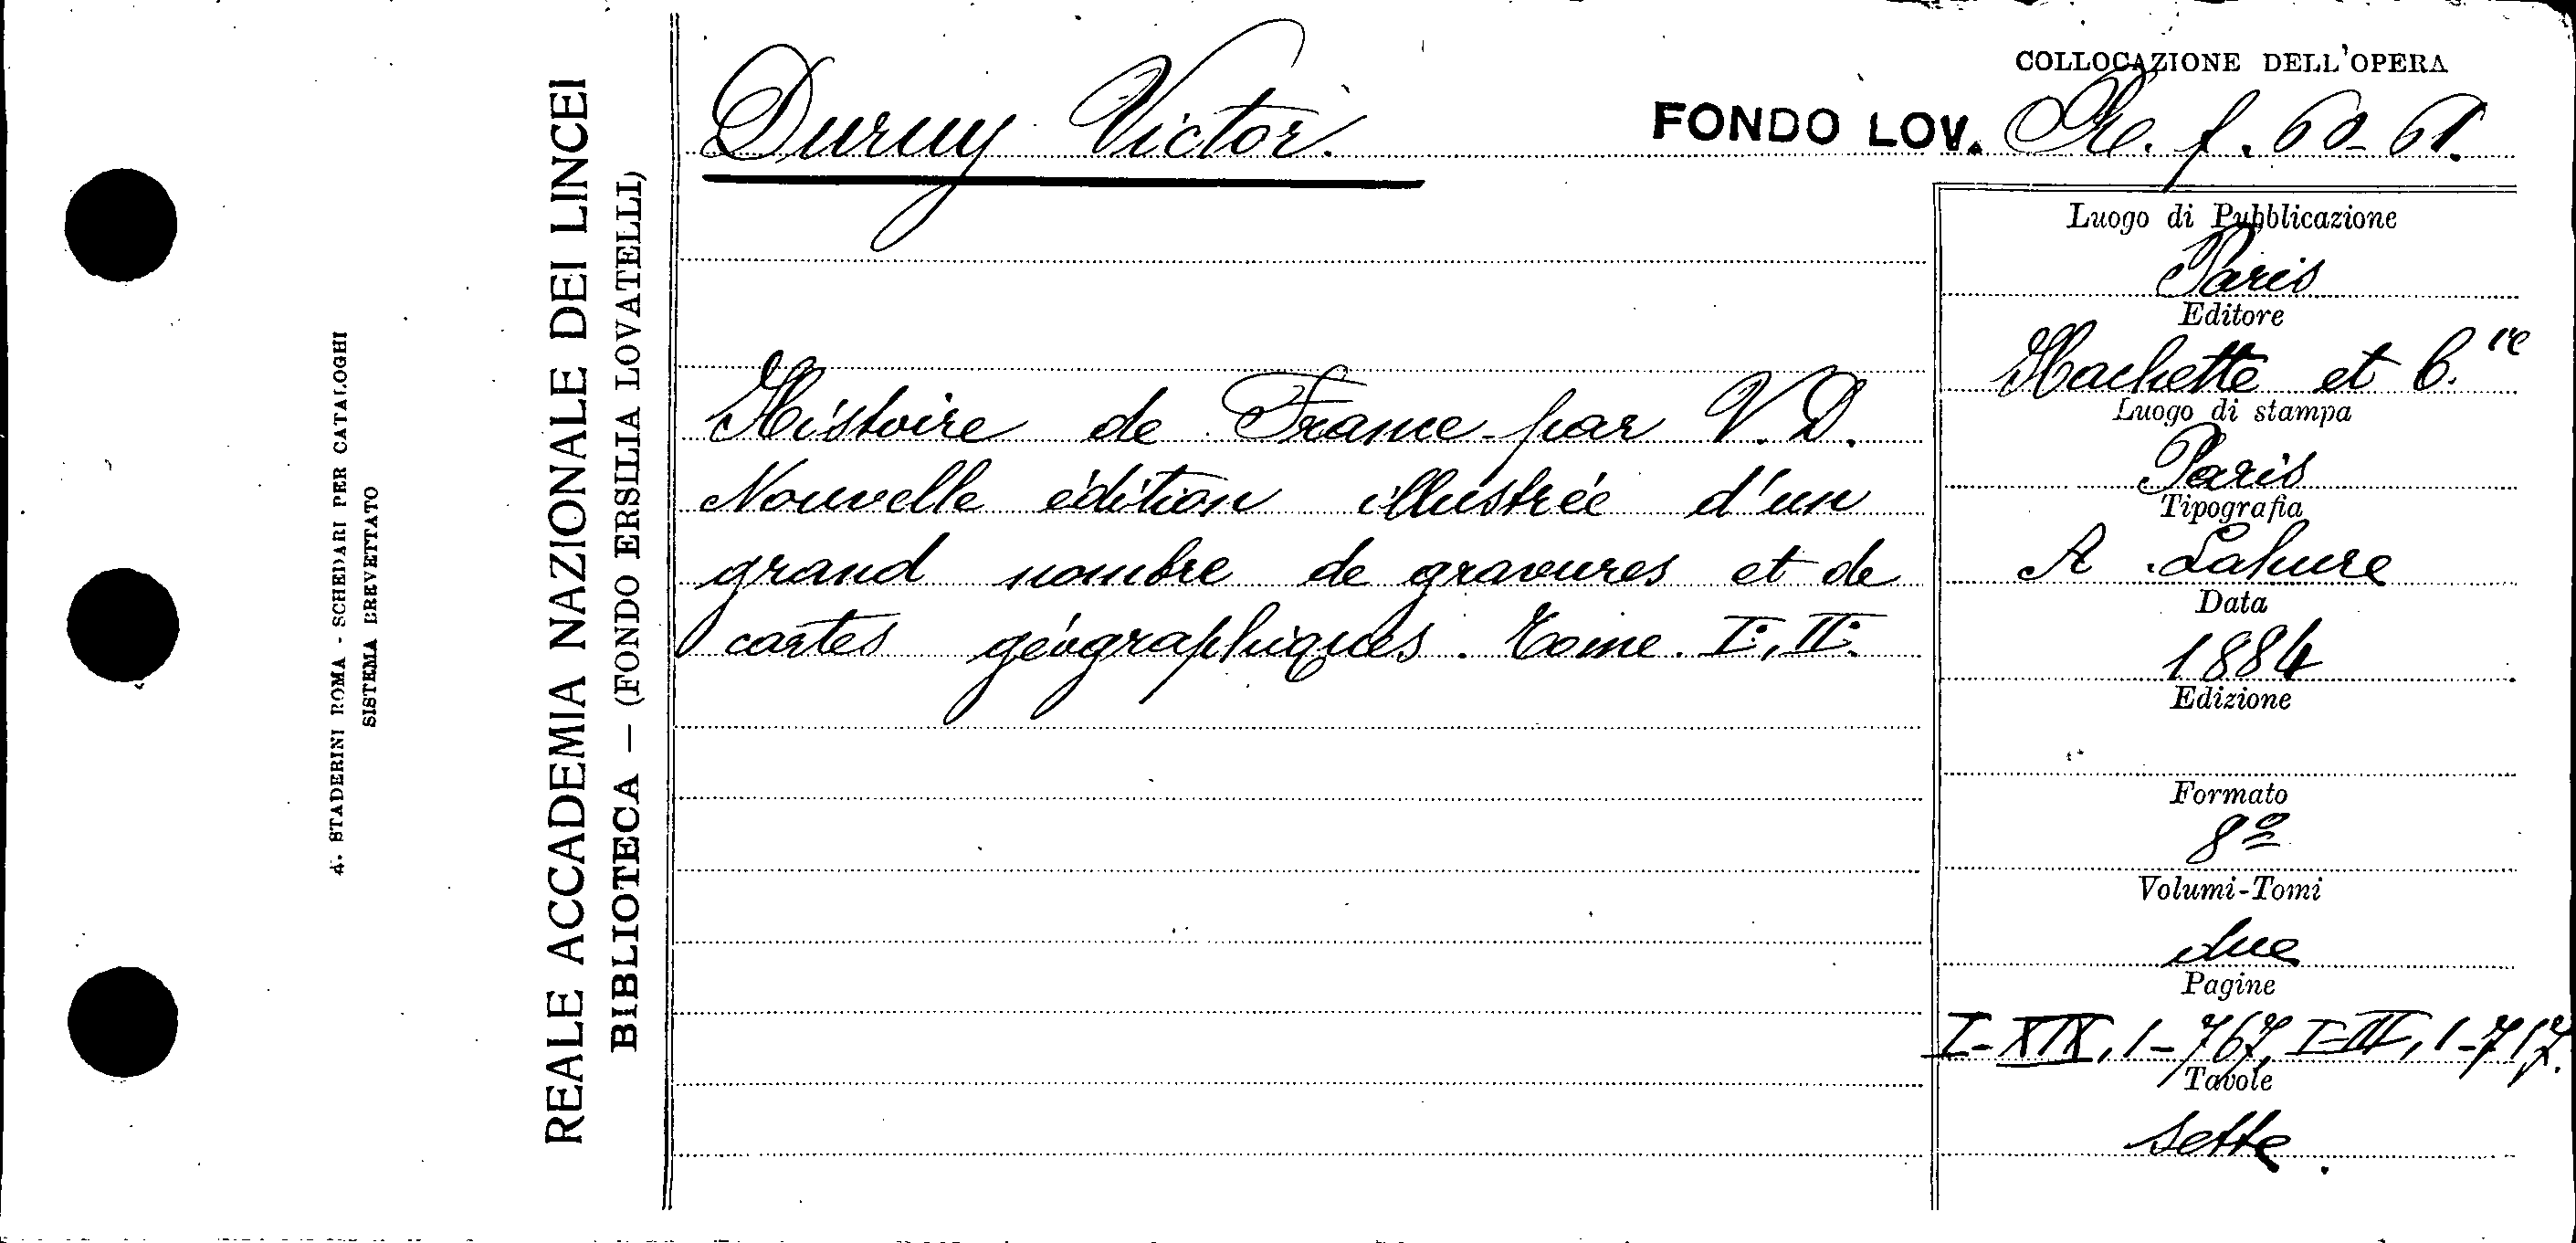 A. STADERINI ROMA - SCHEDARI PER CATALOGHI
SISTEMA BREVETTATO
REALE ACCADEMIA NAZIONALE DEI LINCEI
BIBLIOTECA — (FONDO ERSILIA LOVATELLI)
Duruy Victor.
Histoire de France par V. D.
Nouvelle édition illustrée d'un
grand nombre de gravures et de
cartes géographiques. Tome I:, II:
COLLOCAZIONE DELL'OPERA
FONDO LOV. f. 60-61.
Luogo di Pubblicazione
Paris
Editore
Hachette et C.ie
Luogo di stampa
Paris
Tipografia
A Lahure
Data
1884
Edizione
Formato
8º
Volumi-Tomi
due
Pagine
I-XIX, 1-767, I-III, 1-717.
Tavole
sette.